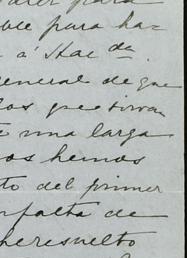 para
ble para ha-
á Hac da.
general de que
los que sirvan
una larga
nos hemos
to del primer
falta de
he resuelto